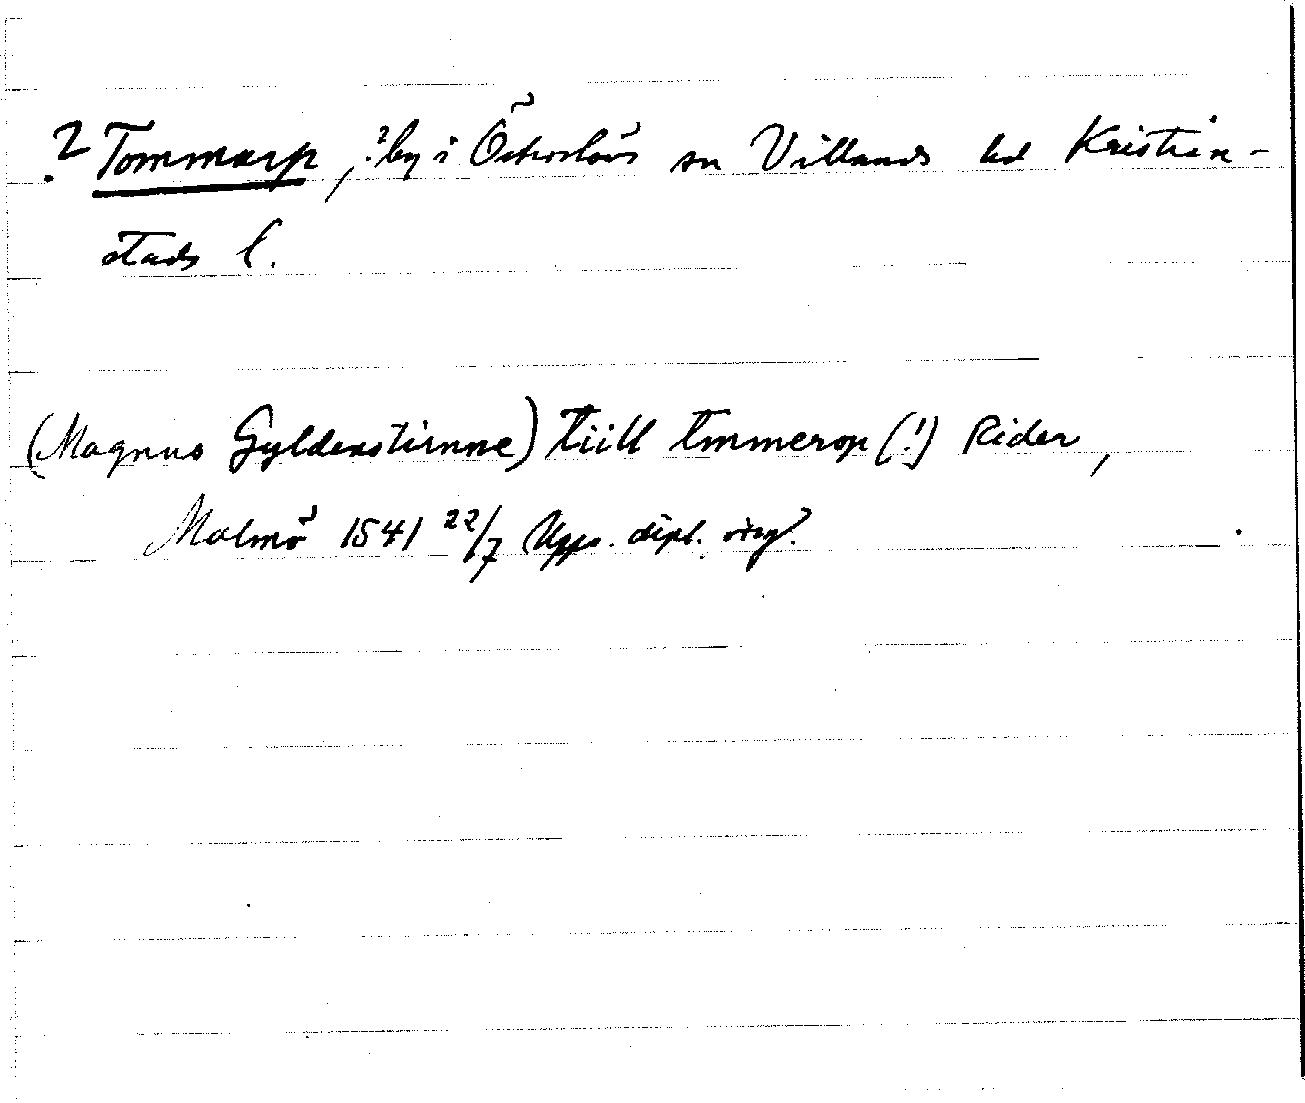 ? Tommarp, ?by i Österslövs sn Villands hd Kristian-
stads l.
(Magnus Gyldenstiernne) tiill tmmerop (!) Rider,
Malmö 1541 22/7 Upps. dipl. orig.